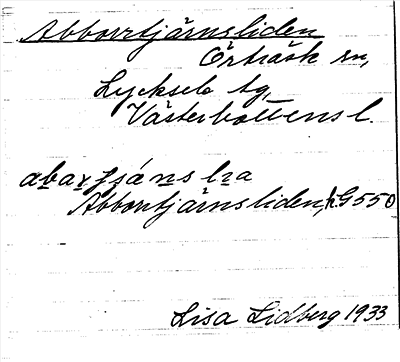 Abborrtjärnsliden
Örträsk sn,
Lycksele tg,
Västerbottens l.
Abborrtjärnsliden, h. G550
Lisa Lidberg 1933